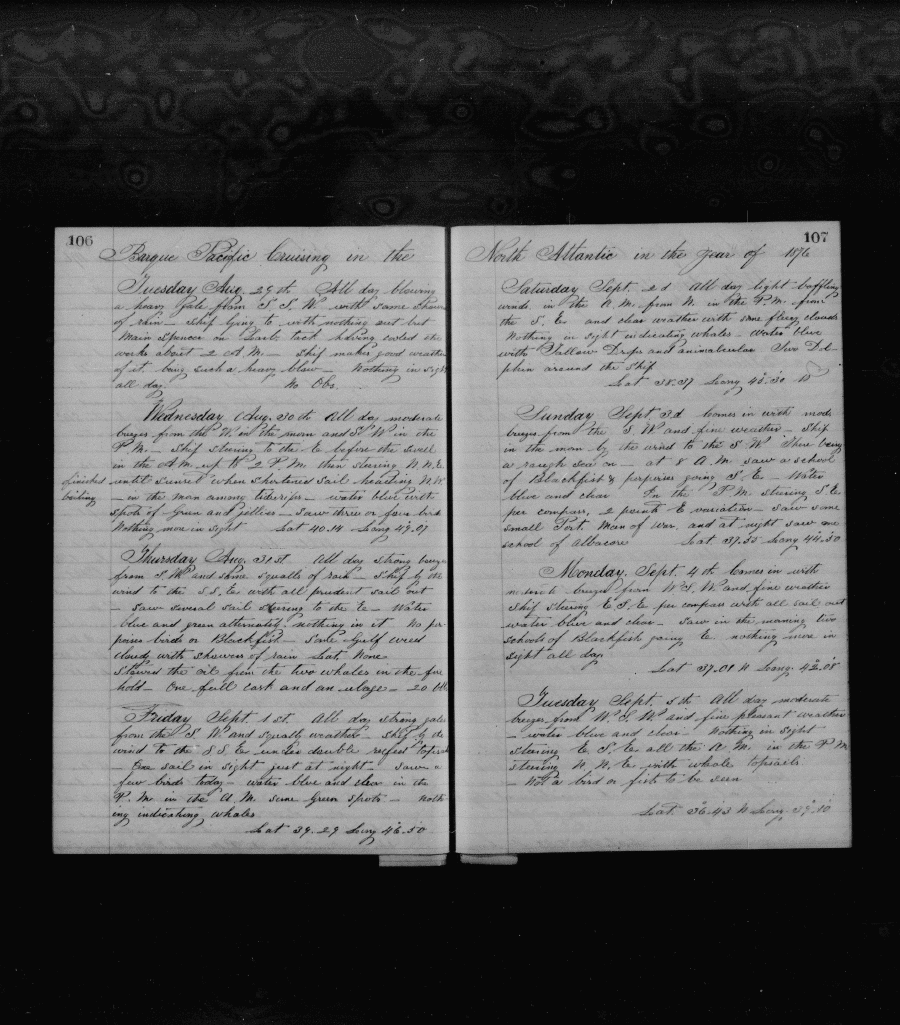 106
Barque Pacific Cruising in the
Tuesday Aug. 29th All day blowing
a heavy gale from S S W with some showers
of rain – Ship lying to with nothing set but
Main Spencer on Larb. tack having cooled the
works about 2 A M. – Ship makes good weather
of it being such a heavy blow – Nothing in sight
all day. No Obs.
Wednesday Aug. 30th All day moderate
breezes from the W. in the morn and S W in the
P M – Ship steering to the E before the swell
in the A M. up to 2 P. M. then steering N. N. E.
finished
boiling
until sunset when shortened sail heading N W
– in the morn among tiderips – water blue with
spots of Green and jellies – saw three or four birds
Nothing more in sight Lat 40.14 Long 47.07
Thursday Aug. 31st All day strong breezes
from S. W and some squalls of rain – Ship by the
wind to the S S. E. with all prudent sail out
– Saw several sail steering to the E – Water
blue and green alternately, nothing in it no por-
poises birds or Blackfish – Some Gulf weed
cloudy with showers of rain Lat, None
Stowed the oil from the two whales in the fore
hold – One full cask and an ulage – 20 bbls
Friday Sept. 1st. All day strong gales
from the S W and squally weather – Ship by the
wind to the S S E under double reefed topsails
– One sail in sight just at night – saw a
few birds today – water blue and clear in the
P. M. in the A. M. some Green spots – noth-
ing indicating whales
Lat 39.29 Long 46.50
107
North Atlantic in the year of 1876
Saturday Sept. 2d All day light baffling
winds in the A. M. from N. in the P. M. from
the S. E. and clear weather with some fleecy clouds
Nothing in sight indicating whales – water blue
with Tallow Drops and animalculae Two Dol-
phin around the Ship
Lat 38.37 Long 45.30 W
Sunday Sept 3d Comes in with mode
breezes from the S W and fine weather – Ship
in the morn by the wind to the S W There being
a rough sea on – at 8 A. M. saw a school
of Blackfish & porpoises going S. E. – Water
blue and clear In the P. M. steering S. E.
per compass, 2 points E variation – saw some
small Port. Men of war, and at night saw one
school of Albacore Lat. 37.55 Long 44.50
Monday, Sept. 4th Comes in with
moderate breezes from W. S. W and fine weather
Ship steering E S. E. per compass with all sail out
water blue and clear – saw in the morning two
schools of Blackfish going E. nothing more in
sight all day
Lat 37.01 N Long. 42.08
Tuesday Sept. 5th All day moderate
breezes from W. S. W and fine pleasant weather
– water blue and clear – Nothing in sight
steering E S. E. all the A. M. in the P M
steering N. N. E. with whole topsails
– Not a bird or fish to be seen
Lat. 36.43 N Long. 39.10